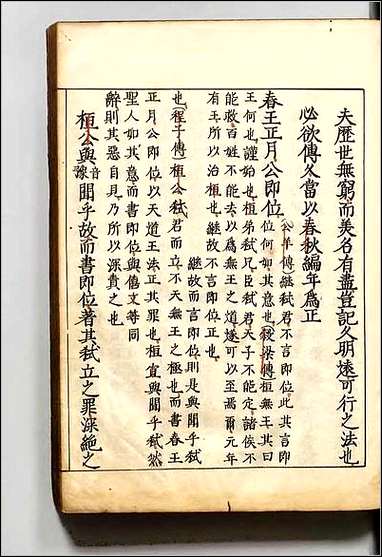 夫歷世無窮而美名有盡豈記久明遠可行之法也
必欲傳久當以春秋編年為正
春王正月公即位 公羊傳繼弑君不言即位此其言即
位何如其意也 穀梁傳桓無王其曰
王何也謹始也桓弟弑兄臣弑君天子不能定諸侯不
能救百姓不能去以為無王之道遂可以至焉爾元年
有王所以治桓也繼故不言即位正也
繼故而言即位則是與聞乎弑
也 程子傳桓公弑君而立不天無王之極也而書春王
正月公即位以天道王法正其罪也桓宣與聞乎弑然
聖人如其意而書即位與僖文等同
辭則其惡自見乃所以深責之也
桓公與音豫聞乎故而書即位著其弑立之罪深絕之